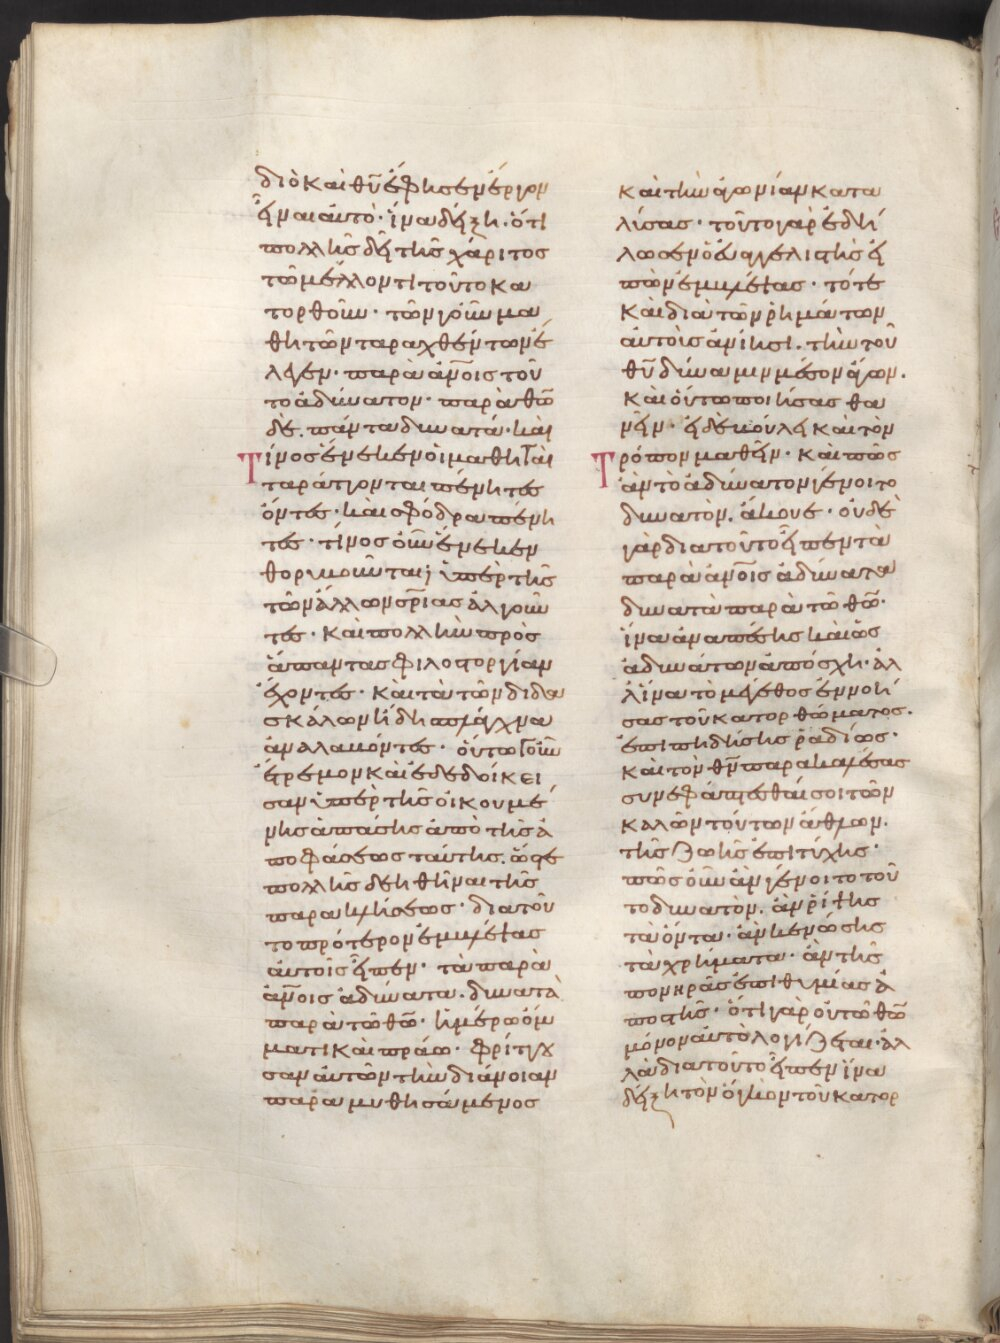 διὸ καὶ θῡ ἔφησεν ἔργον
εἶναι αὐτὸ· ἵνα δείξη· ὅτι
πολλῆς δεῖ τῆς χάριτος
τῶ μέλλοντι τοῦτο κα
τορθοῦν· τῶν γοῦν μα
θητῶν ταραχθέντων ἔ
λεγεν· παρὰ ἀν̅οις τοῦ
το ἀδύνατον· παρὰ θω̅
δὲ. πάντα δυνατά· καὶ
Τίνος ἕνεκεν οἱ μαθηταὶ
ταράττονται πένητες
ὄντες· καὶ σφόδρα πένη
τες· τίνος οὖν ἕνεκεν
θορυβοῦνται; ὑπὲρ τῆς
τῶν ἄλλων σρ̅ιας ἀλγοῦν
τες· καὶ πολλὴν πρὸς
ἅπαντας φιλοστοργίαν
ἔχοντες· καὶ τὰ τῶν διδα
σκάλων ἤδη σπλάγχνα
ἀναλαβόντες· οὕτω γοῦν
ἔτρεμον καὶ ἐδεδοίκει
σαν ὑπὲρ τῆς οἰκουμέ
νης ἁπάσης ἀπὸ τῆς ἀ
ποφάσεως ταύτης. ὥστε
πολλῆς δεηθῆναι τῆς
παρακλήσεως· διὰ τοῦ
το πρότερον ἐμβλέψας
αὐτοῖς εἶπεν· τὰ παρὰ
ἀν̅οις ἀδύνατα. δυνατὰ
παρὰ τῶ θω̅· ἡμέρω ὄμ
ματι καὶ πράω· φρίττου
σαν αὐτῶν τὴν διάνοιαν
παραμυθησάμενος
καὶ τὴν ἀγωνίαν κατα
λύσας· τοῦτο γὰρ ἐδή
λωσεν ὁ εὐαγγελιστὴς εἰ
πὼν ἐμβλέψας· τότε
καὶ διὰ τῶν ῥημάτων
αὐτοὺς ἀνίησι. τὴν τοῦ
θῡ δύναμιν μέσον ἄγων.
καὶ οὕτω ποιήσας θα
ρεῖν· εἰ δὲ βούλει καὶ τὸν
Τρόπον μαθεῖν· καὶ πῶς
ἂν τὸ ἀδύνατον γένοιτο
δυνατὸν. ἄκουε· οὐδὲ
γὰρ διὰ τοῦτο εἶπεν τὰ
παρὰ ἀν̅οις ἀδύνατα
δυνατὰ παρὰ τῶ θω̅·
ἵνα ἀναπέσης καὶ ὡς
ἀδυνάτων ἀπόσχη· ἀλ
λ' ἵνα τὸ μέγεθος ἐννοή
σας τοῦ κατορθώματος.
ἐπιπηδήσης ῥαδίως·
καὶ τὸν θν̅ παρακαλέσας
συνεφάψεσθαί σοι τῶν
καλῶν τούτων ἄθλων.
τῆς ζωῆς ἐπιτύχης·
πῶς οὖν ἂν γένοιτο τοῦ
το δυνατὸν. ἂν ῥίψης
τὰ ὄντα· ἂν κενώσης
τὰ χρήματα· ἂν τῆς
πονηρᾶς ἐπιθυμίας ἀ
ποστῆς· ὅτι γὰρ οὐ τῶ θω̅
μόνον αὐτὸ λογίζεται· ἀλ
λὰ διὰ τοῦτο εἶπεν ἵνα
δείξη τὸν ὄγκον τοῦ κατορ